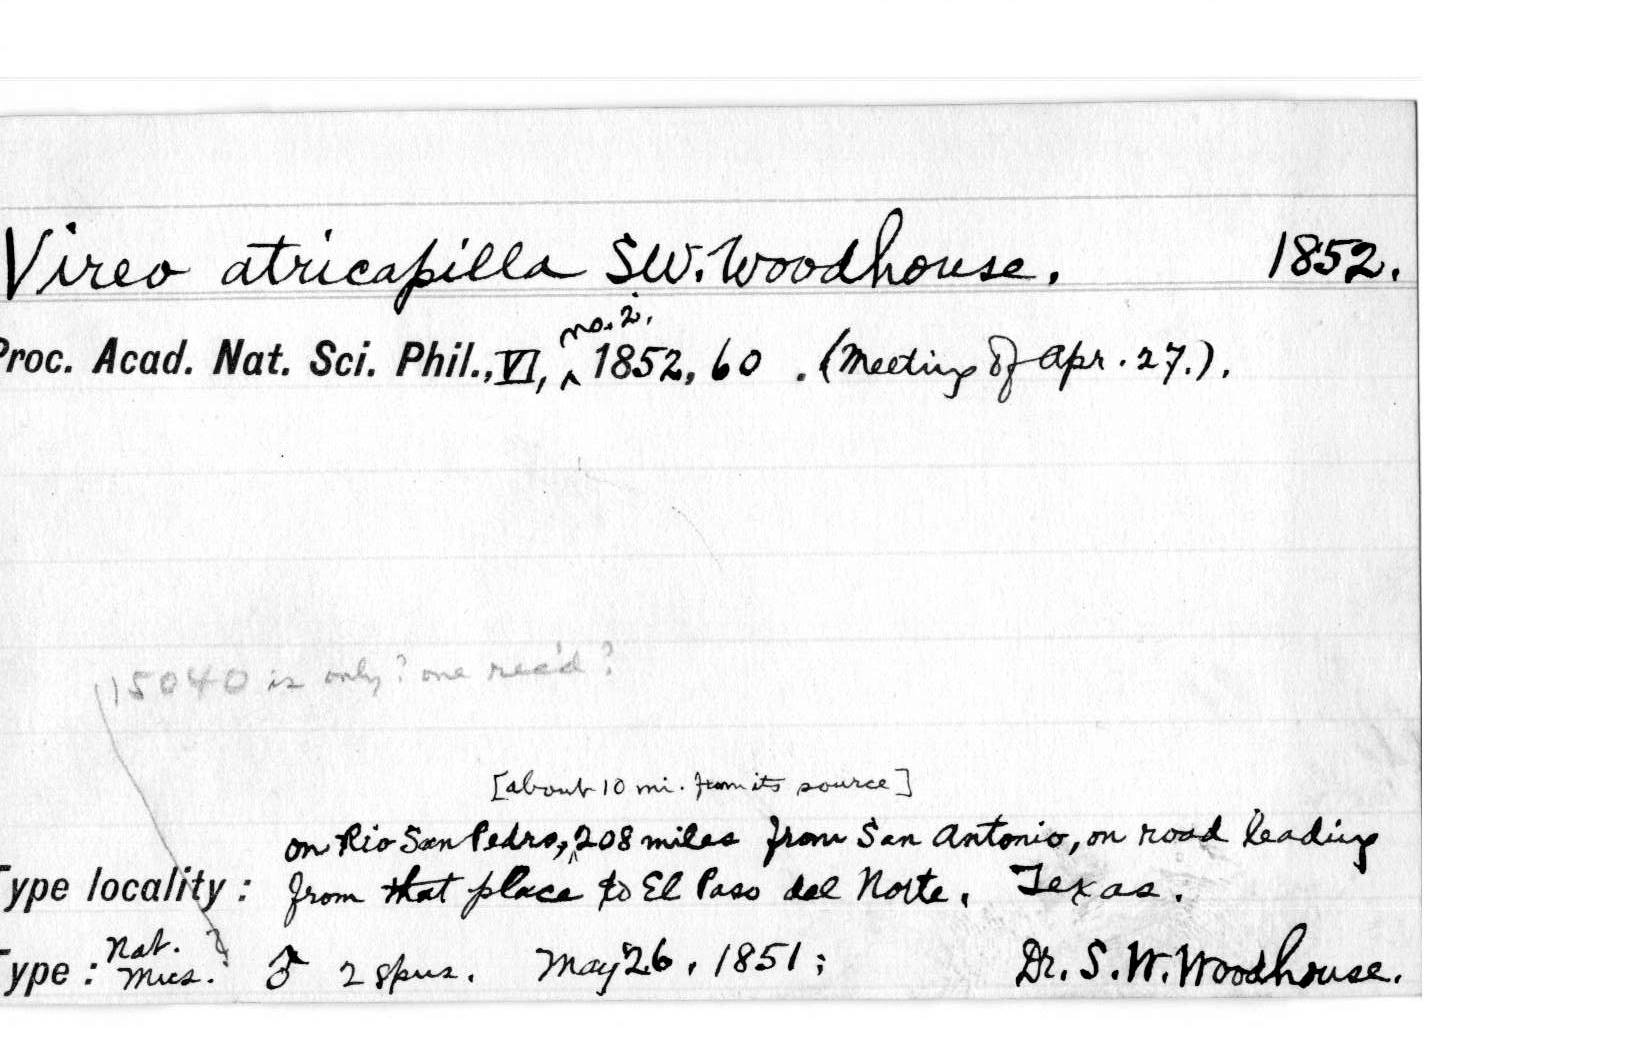 Vireo atricapilla S.W. Woodhouse. 1852.
no. 2,
Proc. Acad. Nat. Sci. Phil., VI, ^ 1852, 60 . (Meeting of Apr. 27.).
15040 is only? one rec'd?
[about 10 mi. from its source]
on Rio San Pedro, ^ 208 miles from San Antonio, on road leading
Type locality: from that place to El Paso del Norte. Texas.
Nat. ?
Type: Mus. ♂ 2 spns. May 26, 1851; Dr. S. W. Woodhouse.